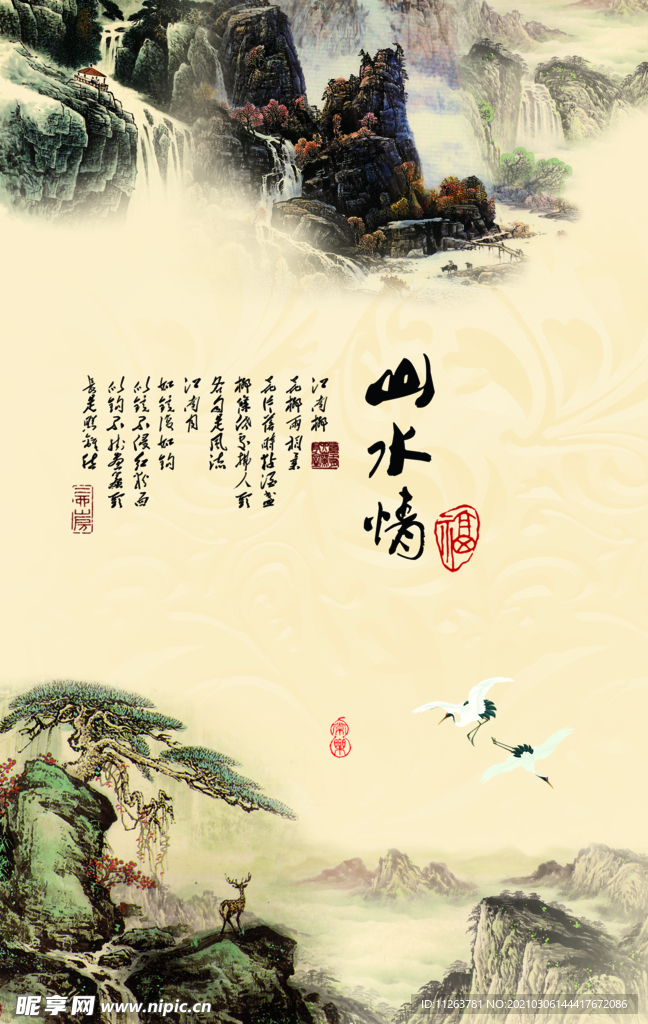 山水情
福
江南柳
花柳两相柔
花片落时黏酒盏
柳条低处拂人头
各自是风流
江南月
如镜复如钩
似镜不侵红粉面
似钩不挂画帘头
长是照离愁
昵享网 www.nipic.cn
ID:11263781 NO:20210306144417672086